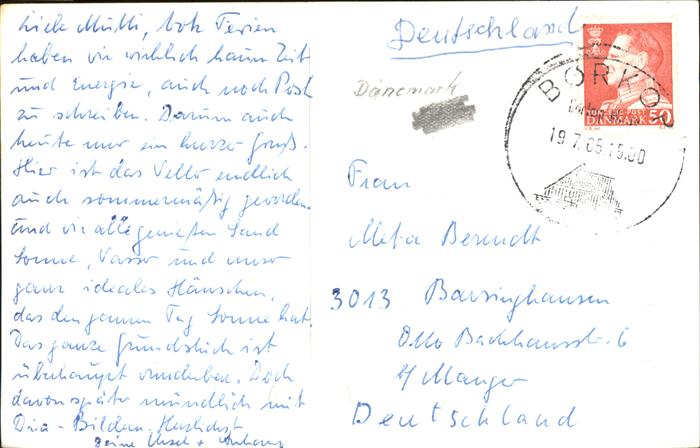 Liebe Mutti, trotz Ferien
haben wir wirklich kaum Zeit
und Energie, auch noch Post
zu schreiben. Darum auch
heute nur ein kurzer Gruß.
Hier ist das Wetter endlich
auch sommermäßig geworden
und wir alle genießen Sand
Sonne, Wasser und unser
ganz ideales Häuschen,
das den ganzen Tag Sonne hat.
Das ganze Grundstück ist
überhaupt wunderbar. Doch
davon später mündlich mit
Dia-Bildern. Herzlichst
Deine +
Deutschland
Dänemark
BØRKOP
19.7.65.15.30
DANMARK 50
Frau
Meta Berendt
3013 Barsinghausen
Otto Backhausstr. 6
b/
Deutschland